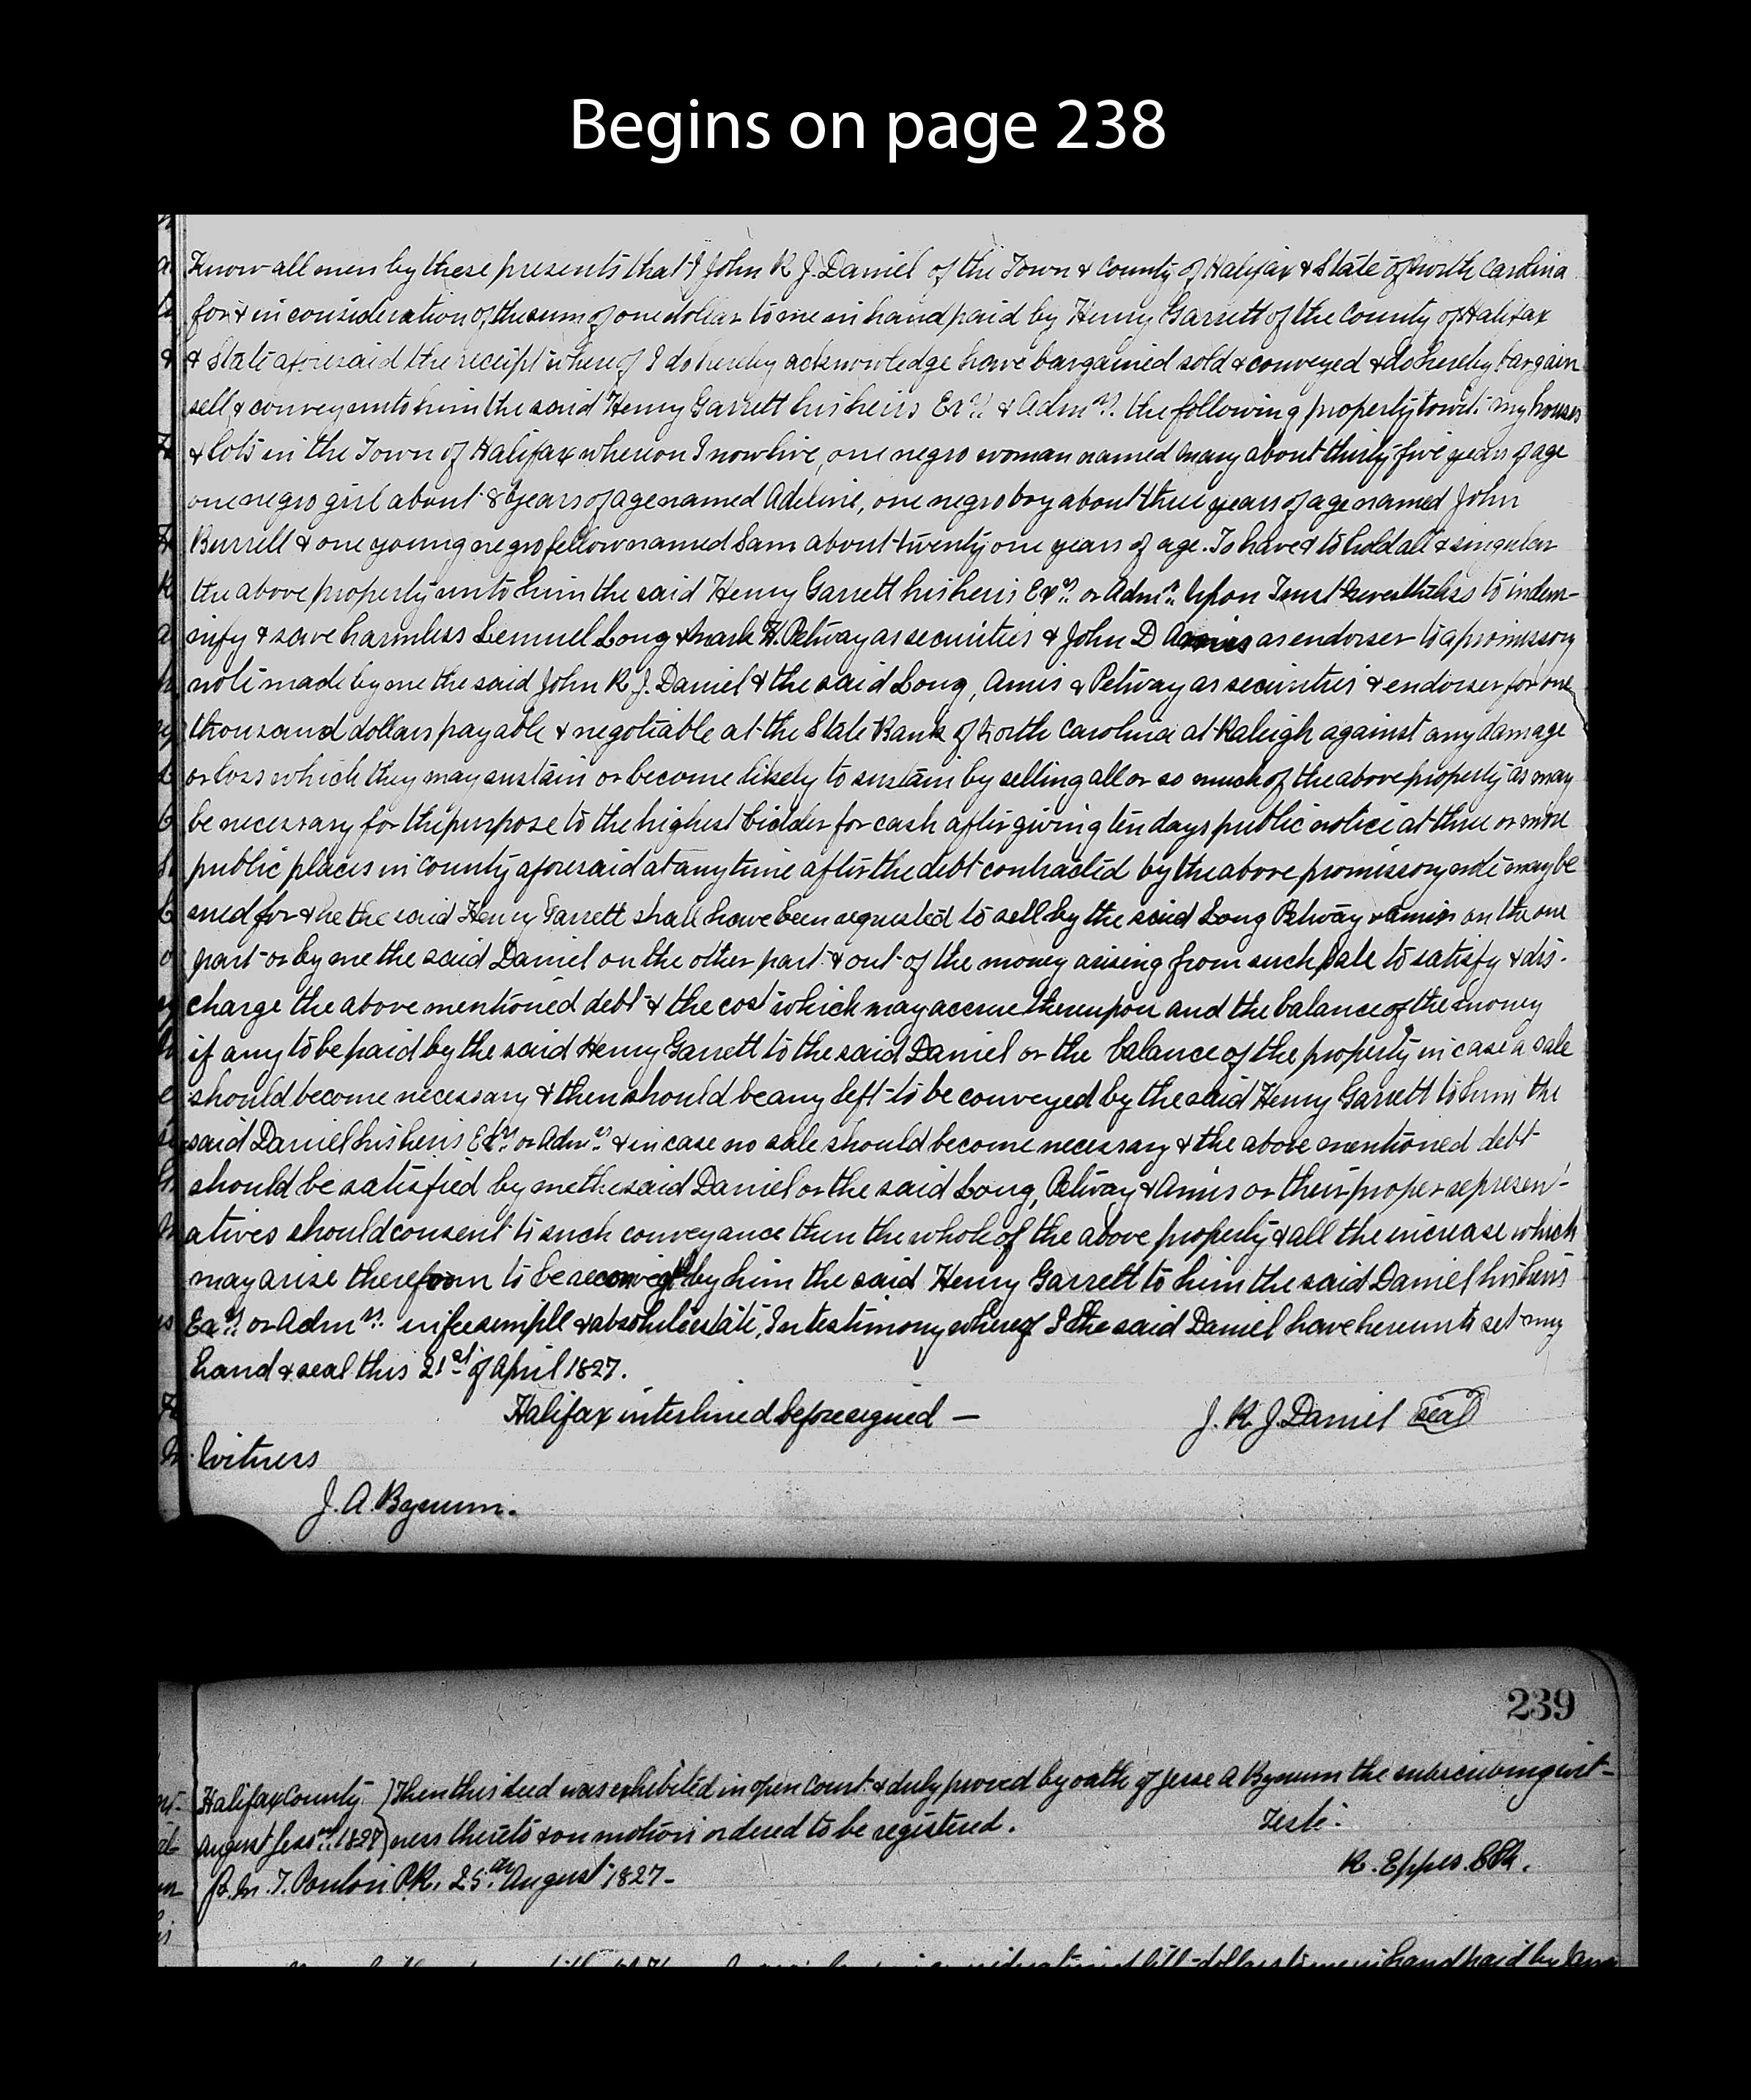 Begins on page 238
Know all men by these presents that I John R J. Daniel of the Town & County of Halifax & State of North Carolina
for & in consideration of the sum of one dollar to me in hand paid by Henry Garrett of the County of Halifax
& State aforesaid the receipt whereof I do hereby acknowledge have bargained sold & conveyed & do hereby bargain
sell & convey unto him the said Henry Garrett his heirs Exrs. & Admrs. the following property towit: my houses
& lots in the Town of Halifax whereon I now live, one negro woman named Mary about thirty five years of age
one negro girl about 8 years of age named Adeline, one negro boy about three years of age named John
Burrell & one young negro fellow named Sam about twenty one years of age. To have & to hold all & singular
the above property unto him the said Henry Garrett his heirs Exrs. or Admrs. Upon Trust Nevertheless to indem-
nify & save harmless Lemuel Long & Mark H. Petway as securities & John D Amis as endorser to a promissory
note made by me the said John R. J. Daniel & the said Long, Amis & Petway as securities & endorser for one
thousand dollars payable & negotiable at the State Bank of North Carolina at Raleigh against any damage
or loss which they may sustain or become likely to sustain by selling all or so much of the above property as may
be necessary for the purpose to the highest bidder for cash after giving ten days public notice at three or more
public places in County aforesaid at any time after the debt contracted by the above promissory note may be
sued for & he the said Henry Garrett shall have been requested to sell by the said Long Petway & Amis on the one
part or by me the said Daniel on the other part & out of the money arising from such sale to satisfy & dis-
charge the above mentioned debt & the cost which may accrue thereupon and the balance of the money
if any to be paid by the said Henry Garrett to the said Daniel or the balance of the property in case a sale
should become necessary & then should be any left to be conveyed by the said Henry Garrett to him the
said Daniel his heirs Exrs. or Admrs. & in case no sale should become necessary & the above mentioned debt
should be satisfied by me the said Daniel or the said Long, Petway & Amis or their proper represent-
atives should consent to such conveyance then the whole of the above property & all the increase which
may arise therefrom to be reconveyed by him the said Henry Garrett to him the said Daniel his heirs
Exrs. or Admrs. in fee simple & absolute estate, In testimony whereof I the said Daniel have hereunto set my
hand & seal this 21st of April 1827.
Halifax interlined before signed — J. R. J. Daniel seal
Witness
J. A. Bynum.
239
Halifax County } Then this deed was exhibited in open Court & duly proved by oath of Jesse A Bynum the subscribing wit-
August Sessn. 1827 } ness thereto & on motion ordered to be registered. Teste.
R. Eppes. Clk.
P.R. 25th August 1827-